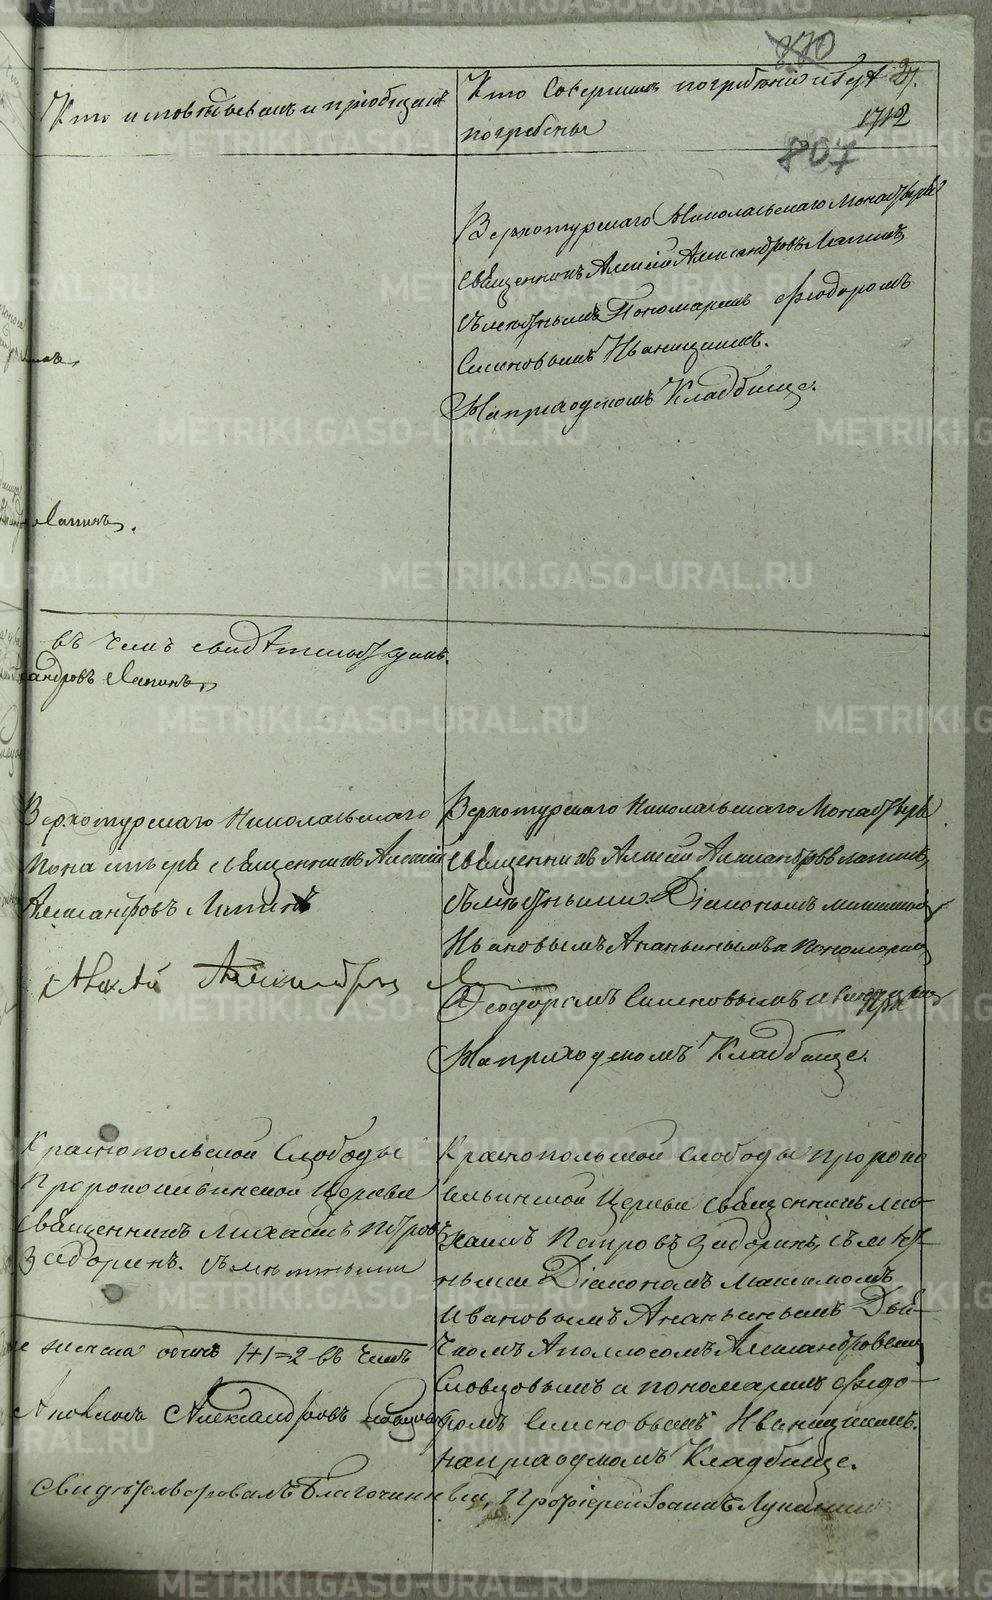 870
Кто исповѣдывалъ и пріобщалъ
Кто совершилъ погребеніе и гдѣ
погребены
27.
1712
807
Верхотурскаго Николаевскаго Монастыря
священникъ Алексій Александровъ Лапинъ
съ мѣстнымъ Пономаремъ Ѳеодоромъ
Симеоновымъ Иваницкимъ.
На приходскомъ Кладбище.
Лапинъ.
въ чемъ свидѣтельствуемъ
андровъ Лапинъ
Верхотурскаго Николаевскаго
Монастыря священникъ Алексій
Александровъ Лапинъ
Верхотурскаго Николаевскаго Монастыря
священникъ Алексій Александровъ Лапинъ,
съ мѣстными Діакономъ Максимомъ
Ивановымъ Ананьинымъ и Пономаремъ
Ѳеодоромъ Симеоновымъ Иваницкимъ
На приходскомъ Кладбище.
Краснопольской Слободы
Пророкоильинской Церкви
священникъ Михаилъ Петровъ
Задоринъ. съ мѣстными
Краснопольской слободы Пророко
ильинской Церкви священникъ Ми-
хаилъ Петровъ Задоринъ, съ мѣст-
ными Діакономъ Максимомъ
Ивановымъ Ананьинымъ Дья-
чкомъ Аполлосомъ Александровымъ
Словцовымъ и пономаремъ Ѳедо-
ромъ Симеоновымъ Иваницкимъ.
на приходскомъ Кладбище.
числа обоихъ 1+1=2 въ чемъ
Александровъ
свидѣтельствовалъ Благочинный, Протоіерей Іоаннъ Лукинъ
METRIKI.GASO-URAL.RU